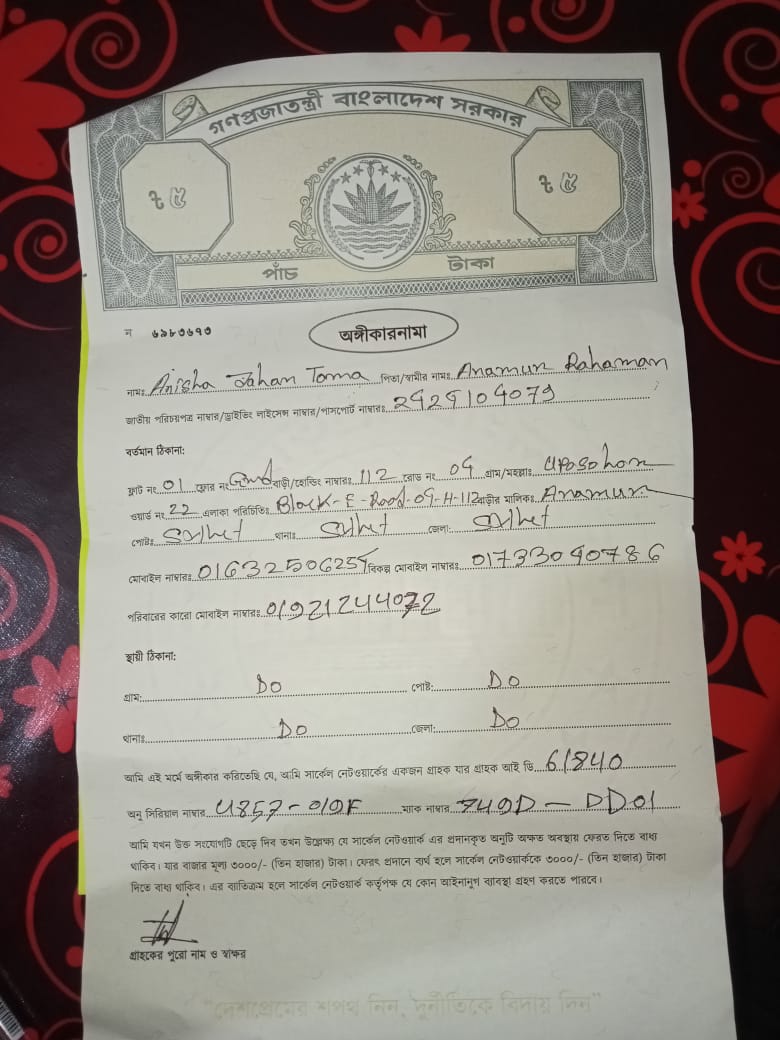 গণপ্রজাতন্ত্রী বাংলাদেশ সরকার
৳ ৫ ৳ ৫
পাঁচ টাকা
ন ৬৯৮৩৬৭৩
অঙ্গীকারনামা
নামঃ Anisha Jahan Toma পিতা/স্বামীর নামঃ Anamur Rahaman
জাতীয় পরিচয়পত্র নাম্বার/ড্রাইভিং লাইসেন্স নাম্বার/পাসপোর্ট নাম্বারঃ 2429104079
বর্তমান ঠিকানা:
ফ্লাট নং 01 ফ্লোর নং Grnd বাড়ী/হোল্ডিং নাম্বারঃ 112 রোড নং 09 গ্রাম/মহল্লাঃ Uposohor
ওয়ার্ড নং 22 এলাকা পরিচিতিঃ Block-E-Road-09-H-112 বাড়ীর মালিকঃ Anamur
পোষ্টঃ Sylhet থানাঃ Sylhet জেলা: Sylhet
মোবাইল নাম্বারঃ 01632506255 বিকল্প মোবাইল নাম্বারঃ 01733090786
পরিবারের কারো মোবাইল নাম্বারঃ 01921244072
স্থায়ী ঠিকানা:
গ্রাম: DO পোষ্ট: DO
থানাঃ DO জেলা: DO
আমি এই মর্মে অঙ্গীকার করিতেছি যে, আমি সার্কেল নেটওয়ার্কের একজন গ্রাহক যার গ্রাহক আই ডি 61840
অনু সিরিয়াল নাম্বার 4857-019F ম্যাক নাম্বার 749D-DD01
আমি যখন উক্ত সংযোগটি ছেড়ে দিব তখন উল্লেক্ষ্য যে সার্কেল নেটওয়ার্ক এর প্রদানকৃত অনুটি অক্ষত অবস্থায় ফেরত দিতে বাধ্য
থাকিব। যার বাজার মূল্য ৩০০০/- (তিন হাজার) টাকা। ফেরৎ প্রদানে ব্যর্থ হলে সার্কেল নেটওয়ার্ককে ৩০০০/- (তিন হাজার) টাকা
দিতে বাধ্য থাকিব। এর ব্যতিক্রম হলে সার্কেল নেটওয়ার্ক কর্তৃপক্ষ যে কোন আইনানুগ ব্যবস্থা গ্রহণ করতে পারবে।
গ্রাহকের পুরো নাম ও স্বাক্ষর
"দেশপ্রেমের শপথ নিন, দুর্নীতিকে বিদায় দিন"